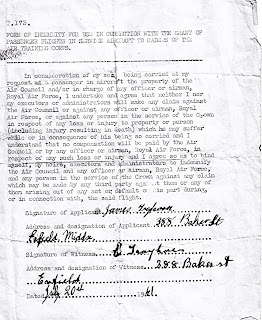 F.175.
FORM OF INDEMNITY FOR USE IN CONNECTION WITH THE GRANT OF
PASSENGER FLIGHTS IN SERVICE AIRCRAFT TO CADETS OF THE
AIR TRAINING CORPS.
In consideration of my son being carried at my
request as a passenger in aircraft the property of the
Air Council and/or in charge of any officer or airman,
Royal Air Force, I undertake and agree that neither I nor
my executors or administrators will make any claim against
the Air Council or against any officer or airman, Royal
Air Force, or against any person in the service of the Crown
in respect of any loss or injury to property or person
(including injury resulting in death) which he may suffer
while or in consequence of his being so carried and I
understand that no compensation will be paid by the Air
Council or by any officer or airman, Royal Air Force, in
respect of any such loss or injury and I agree so as to bind
myself, my heirs, executors and administrators to indemnify
the Air Council and any officer or airman, Royal Air Force, and
any person in the service of the Crown against any claim
which may be made by any third party against them or any of
them arising out of any act or default on his part during,
or in connection with, the said flight.
Signature of Applicant
Address and designation of Applicant. 358 Baker St
Enfield Middx
Signature of Witness
Address and designation of Witness. 358 Baker St
Enfield
Dated July 20th 1941.